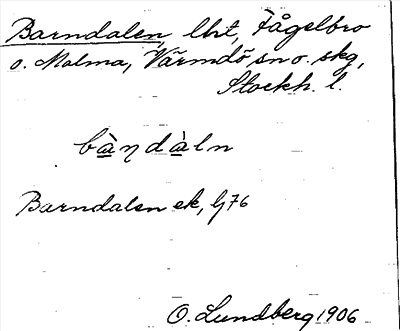 Barndalen, lht, Fågelbro
o. Malma, Värmdö sn o. skg,
Stockh. l.
bàṇdàln
Barndalen ek, Gj 76
O. Lundberg 1906